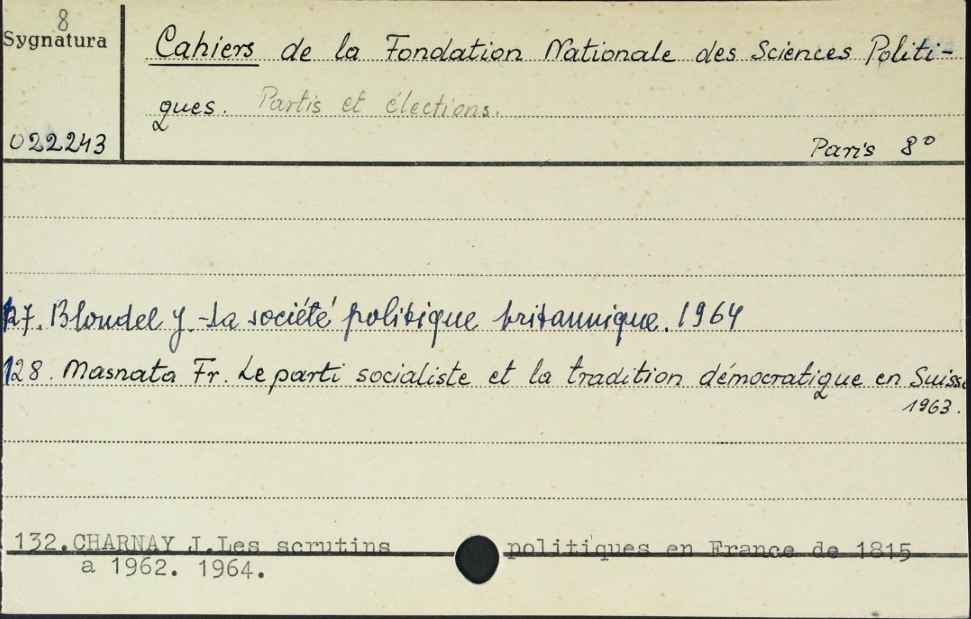 8
Sygnatura
Cahiers de la Fondation Nationale des Sciences Politi-
ques. Partis et élections.
022243
Paris 8°
127. Blondel J. - La société politique britannique. 1964
128. Masnata Fr. Le parti socialiste et la tradition démocratique en Suisse
1963.
132. CHARNAY J. Les scrutins politiques en France de 1815
a 1962. 1964.